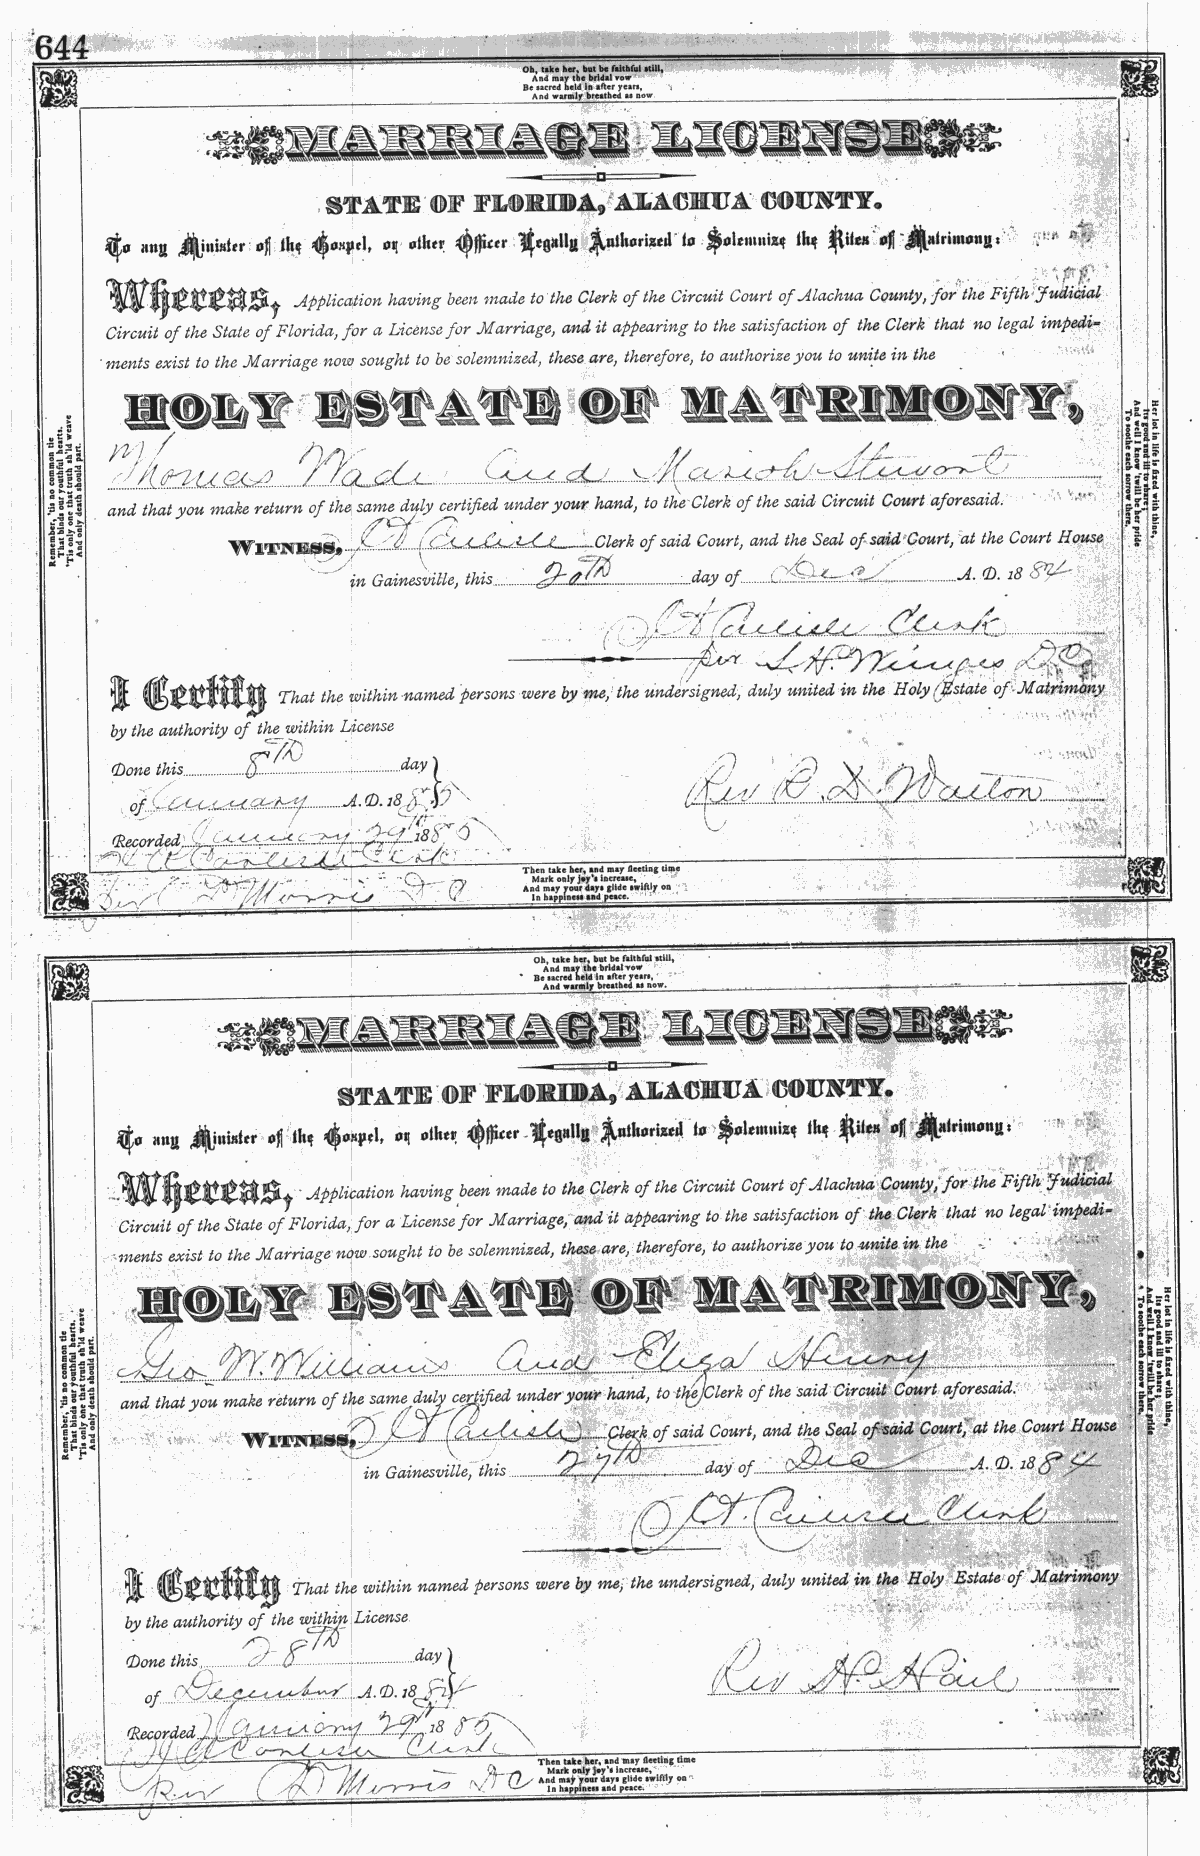 644
Oh, take her, but be faithful still,
And may the bridal vow
Be sacred held in after years,
And warmly breathed as now
MARRIAGE LICENSE
STATE OF FLORIDA, ALACHUA COUNTY.
To any Minister of the Gospel, or other Officer Legally Authorized to Solemnize the Rites of Matrimony:
Whereas, Application having been made to the Clerk of the Circuit Court of Alachua County, for the Fifth Judicial
Circuit of the State of Florida, for a License for Marriage, and it appearing to the satisfaction of the Clerk that no legal impedi-
ments exist to the Marriage now sought to be solemnized, these are, therefore, to authorize you to unite in the
HOLY ESTATE OF MATRIMONY,
Thomas Wade and Mariah Stewart
and that you make return of the same duly certified under your hand, to the Clerk of the said Circuit Court aforesaid.
WITNESS, Carlisle Clerk of said Court, and the Seal of said Court, at the Court House
in Gainesville, this 20TH day of Dec A. D. 1884
Carlisle Clerk
per S. H. Wienges D.C.
I Certify That the within named persons were by me, the undersigned, duly united in the Holy Estate of Matrimony
by the authority of the within License
Done this 8TH day
of January A. D. 1885
Rev R. D. Walton
Recorded January 29th 1885
Carlisle Clerk
per Morris D C
Remember, 'tis no common tie
That binds our youthful hearts,
'Tis only one that truth sh'ld weave
And only death should part.
Her lot in life is fixed with thine,
Its good and ill to share;
And well I know 'twill be her pride
To soothe each sorrow there,
Then take her, and may fleeting time
Mark only joy's increase,
And may your days glide swiftly on
In happiness and peace.
Oh, take her, but be faithful still,
And may the bridal vow
Be sacred held in after years,
And warmly breathed as now.
MARRIAGE LICENSE
STATE OF FLORIDA, ALACHUA COUNTY.
To any Minister of the Gospel, or other Officer Legally Authorized to Solemnize the Rites of Matrimony:
Whereas, Application having been made to the Clerk of the Circuit Court of Alachua County, for the Fifth Judicial
Circuit of the State of Florida, for a License for Marriage, and it appearing to the satisfaction of the Clerk that no legal impedi-
ments exist to the Marriage now sought to be solemnized, these are, therefore, to authorize you to unite in the
HOLY ESTATE OF MATRIMONY,
Geo W. Williams and Eliza Henry
and that you make return of the same duly certified under your hand, to the Clerk of the said Circuit Court aforesaid.
WITNESS, Carlisle Clerk of said Court, and the Seal of said Court, at the Court House
in Gainesville, this 27TH day of Dec A. D. 1884
Carlisle Clerk
I Certify That the within named persons were by me, the undersigned, duly united in the Holy Estate of Matrimony
by the authority of the within License
Done this 28TH day
of December A. D. 1884
Rev H. Hail
Recorded January 29th 1885
Carlisle Clerk
per Morris D C
Remember, 'tis no common tie
That binds our youthful hearts,
'Tis only one that truth sh'ld weave
And only death should part.
Her lot in life is fixed with thine,
Its good and ill to share;
And well I know 'twill be her pride
To soothe each sorrow there,
Then take her, and may fleeting time
Mark only joy's increase,
And may your days glide swiftly on
In happiness and peace.